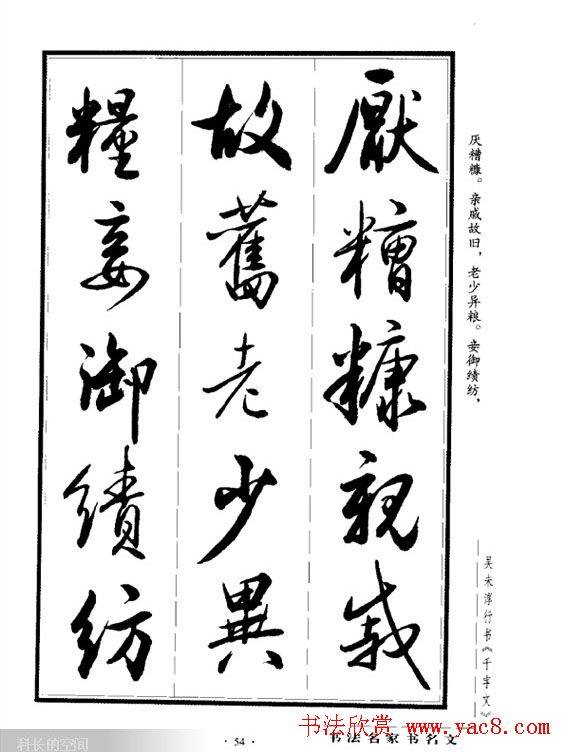 厭糟糠親戚
故舊老少異
糧妾御績紡
厌糟糠。亲戚故旧，老少异粮。妾御绩纺，
吴未淳行书《千字文》
书法名家书名文
· 54 ·
书法欣赏 www.yac8.com
科长的空间